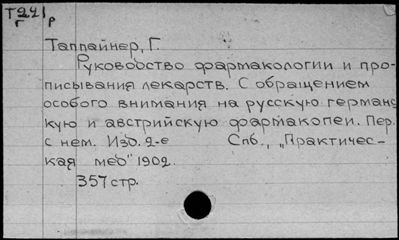 Т221 р
г
Таппайнер, Г.
Руководство фармакологии и про-
писывания лекарств. С обращением
особого внимания на русскую германс
кую и австрийскую фармакопеи. Пер.
с нем. Изд. 2-е Спб., „Практичес-
кая мед" 1902.
357 стр.